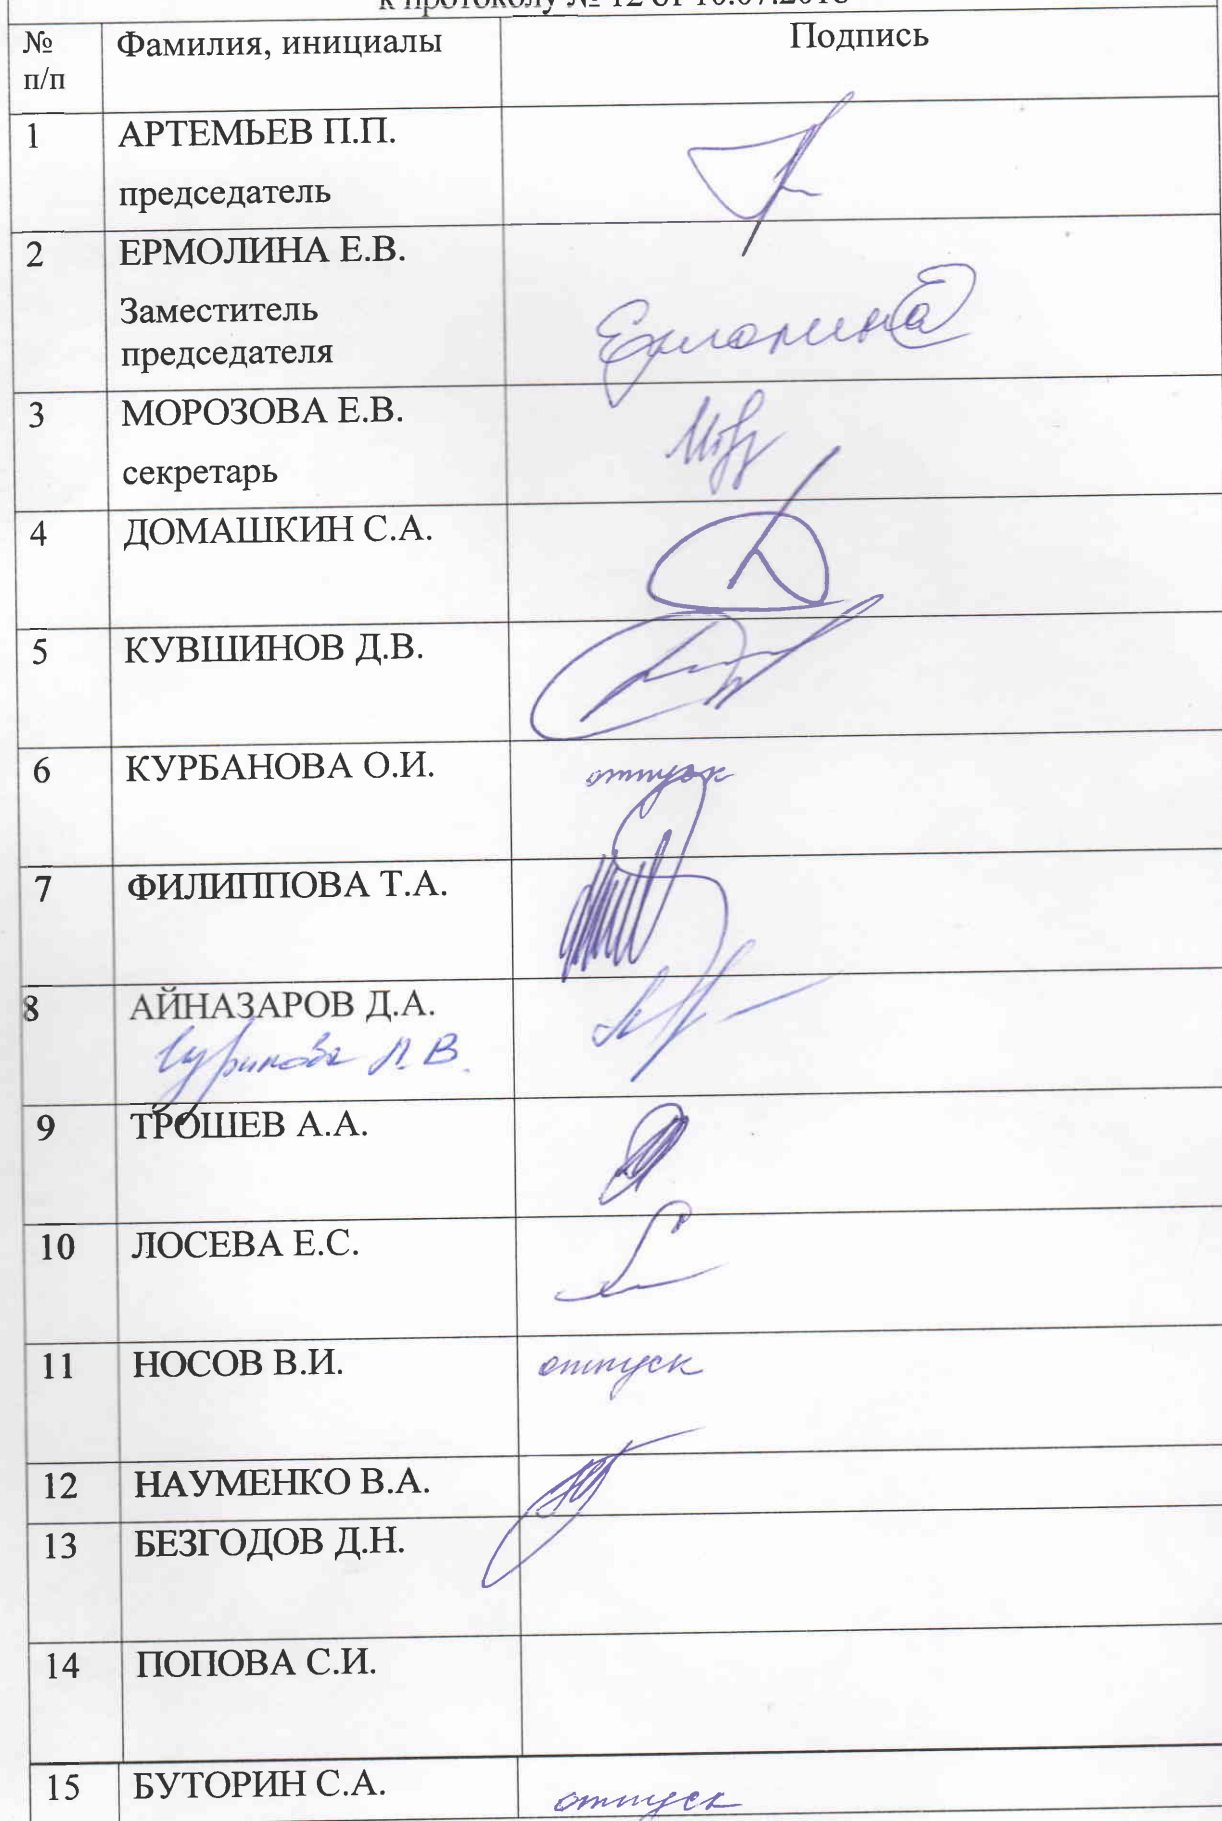 к протоколу № 12 от 10.07.2018
№ п/п Фамилия, инициалы Подпись
1 АРТЕМЬЕВ П.П.
председатель
2 ЕРМОЛИНА Е.В.
Заместитель
председателя
Ермолина
3 МОРОЗОВА Е.В.
секретарь
4 ДОМАШКИН С.А.
5 КУВШИНОВ Д.В.
6 КУРБАНОВА О.И. отпуск
7 ФИЛИППОВА Т.А.
8 АЙНАЗАРОВ Д.А.
9 ТРОШЕВ А.А.
10 ЛОСЕВА Е.С.
11 НОСОВ В.И. отпуск
12 НАУМЕНКО В.А.
13 БЕЗГОДОВ Д.Н.
14 ПОПОВА С.И.
15 БУТОРИН С.А. отпуск